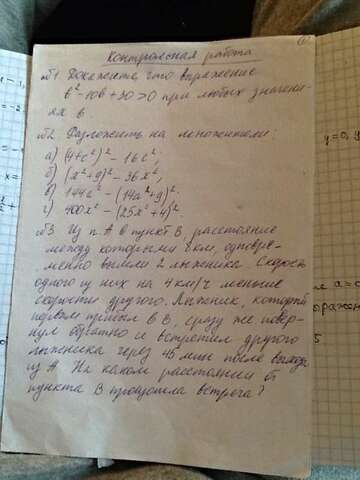 Контрольная работа
№1 Докажите, что выражение
b²-10b+30>0 при любых значени-
ях b.
№2 Разложить на множители:
а) (4+c²)² - 16c²;
б) (x²+9)² - 36x²;
в) 144a² - (14a²+9)²
г) 400x² - (25x²+4)²
№3 Из п. А в пункт В, расстояние
между которыми км, одновре-
менно вышли 2 лыжника. Скорость
одного из них на 4 км/ч меньше
скорости другого. Лыжник, который
первым прибыл в В, сразу же повер-
нул обратно и встретил другого
лыжника через 45 мин после выхода
из А. На каком расстоянии от
пункта В произошла встреча?